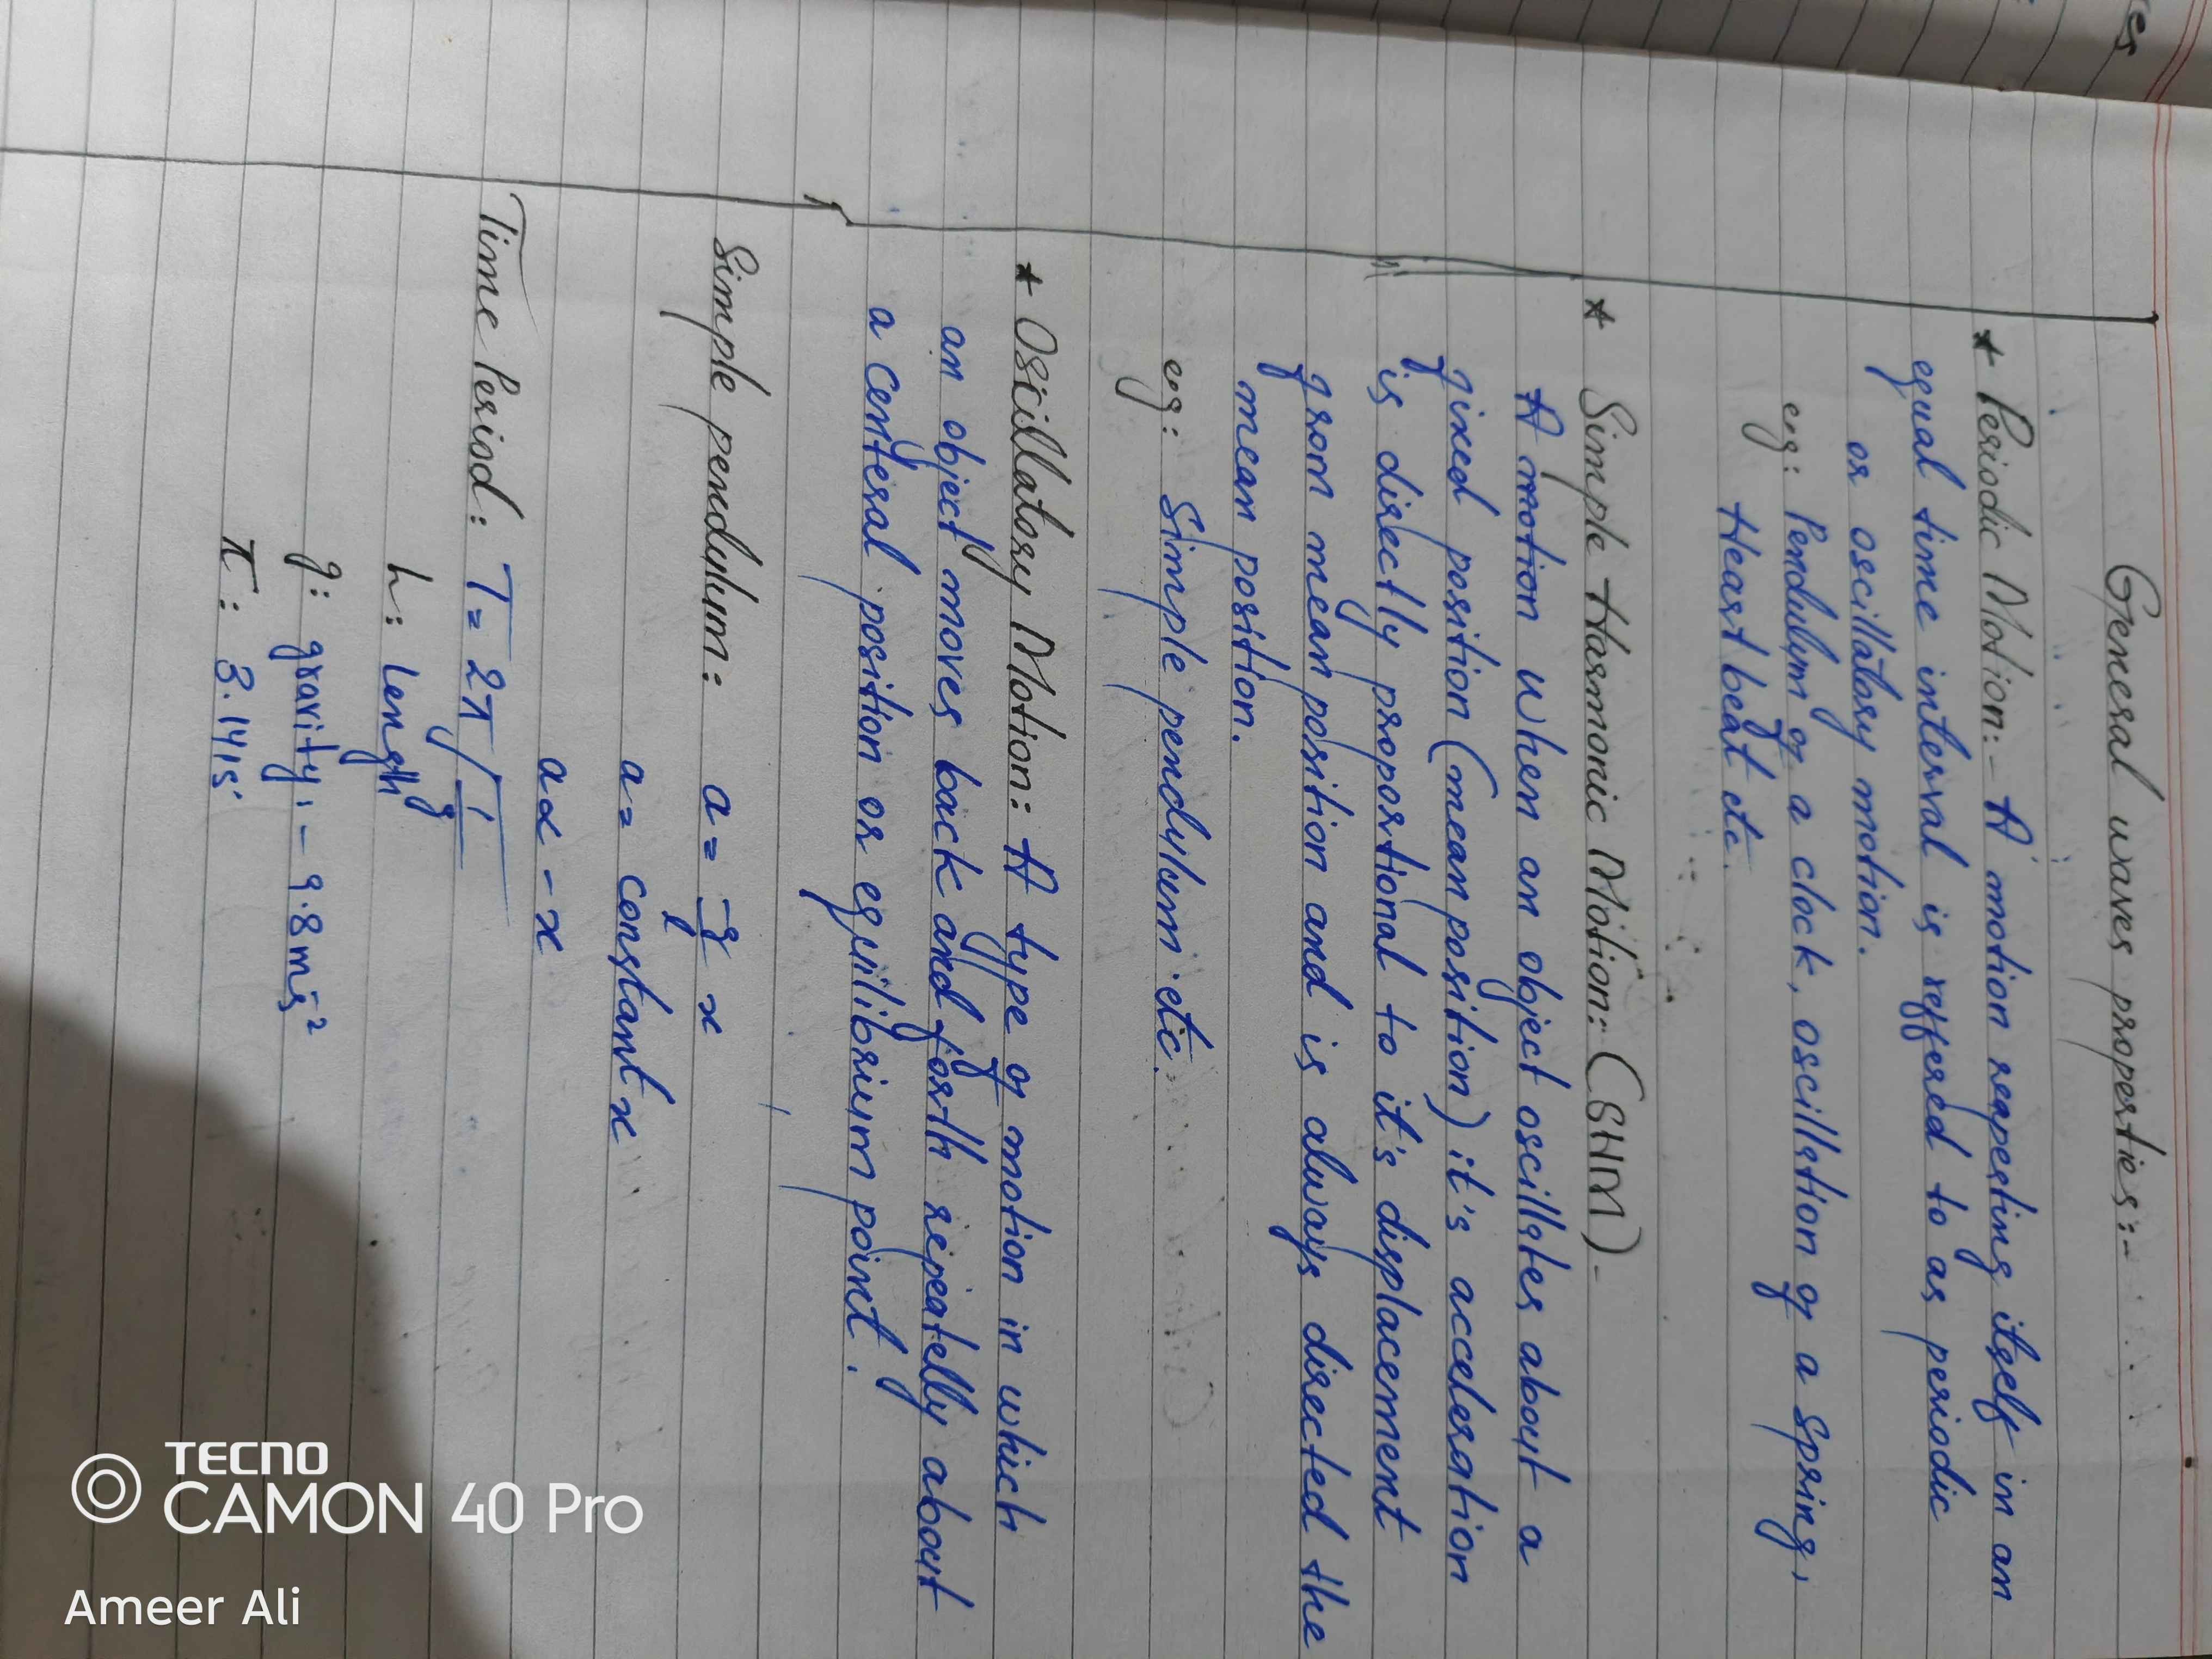 es
General waves properties:-
* Periodic Motion:- A motion reapesting itself in an
equal time interval is reffered to as periodic
or oscillatory motion.
e.g: Pendulum of a clock, oscillation of a spring,
Heart beat etc.
* Simple Harmonic Motion: (SHM)-
A motion when an object oscillates about a
fixed position (mean position) it's acceleration
is directly proportional to it's displacement
from mean position and is always directed the
mean position.
e.g: Simple pendulum. etc.
* Oscillatory Motion: A type of motion in which
an object moves back and forth repeatelly about
a centeral position or equilibrium point.
Simple pendulum: a = -g/l x
a = constant x
a ∝ - x
Time Period: T = 2π√l/g
L: Length
g: gravity, - 9.8ms⁻²
π: 3.1415
TECNO
CAMON 40 Pro
Ameer Ali